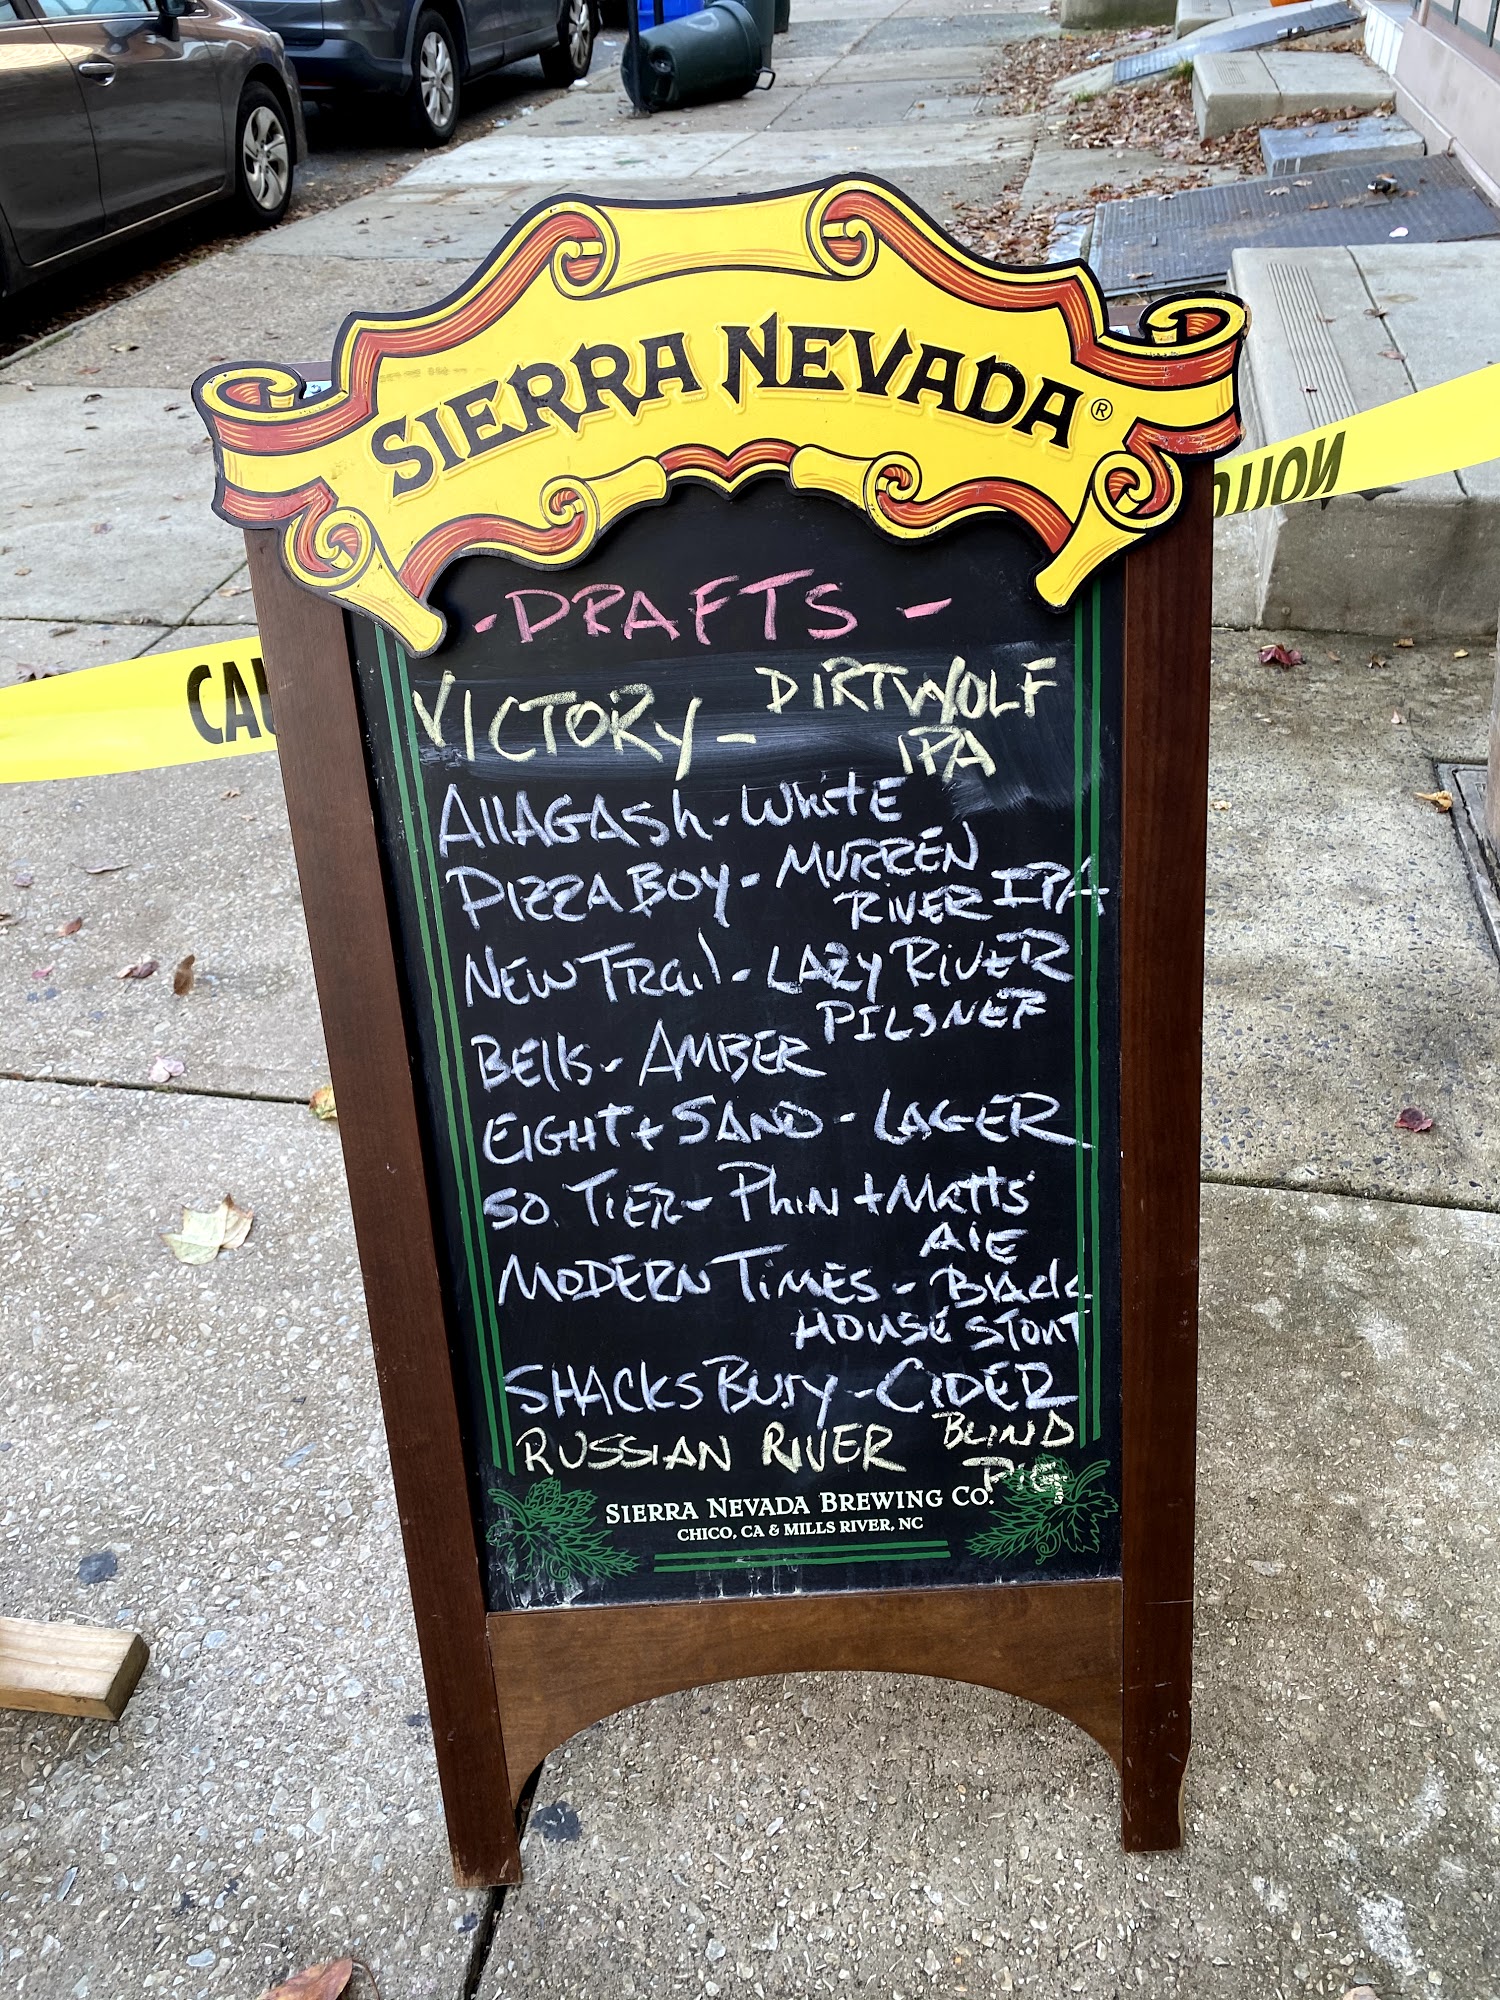 SIERRA NEVADA®
CAU
UTION
-DRAFTS-
VICTORY - DIRTWOLF
IPA
AllAGASh - WhitE
PIZZA BOY - MURREN
RIVER IPA
NEW TRail - LAZY RIVER
PILSNER
BEllS - AMBER
EIGHT + SAND - LAGER
SO. TIER - PhIN + Matts'
AlE
MODERN TIMES - Black
HOUSE STOUT
SHACKSBURY - CIDER
RUSSIAN RIVER BLIND
PIG
SIERRA NEVADA BREWING CO.
CHICO, CA & MILLS RIVER, NC